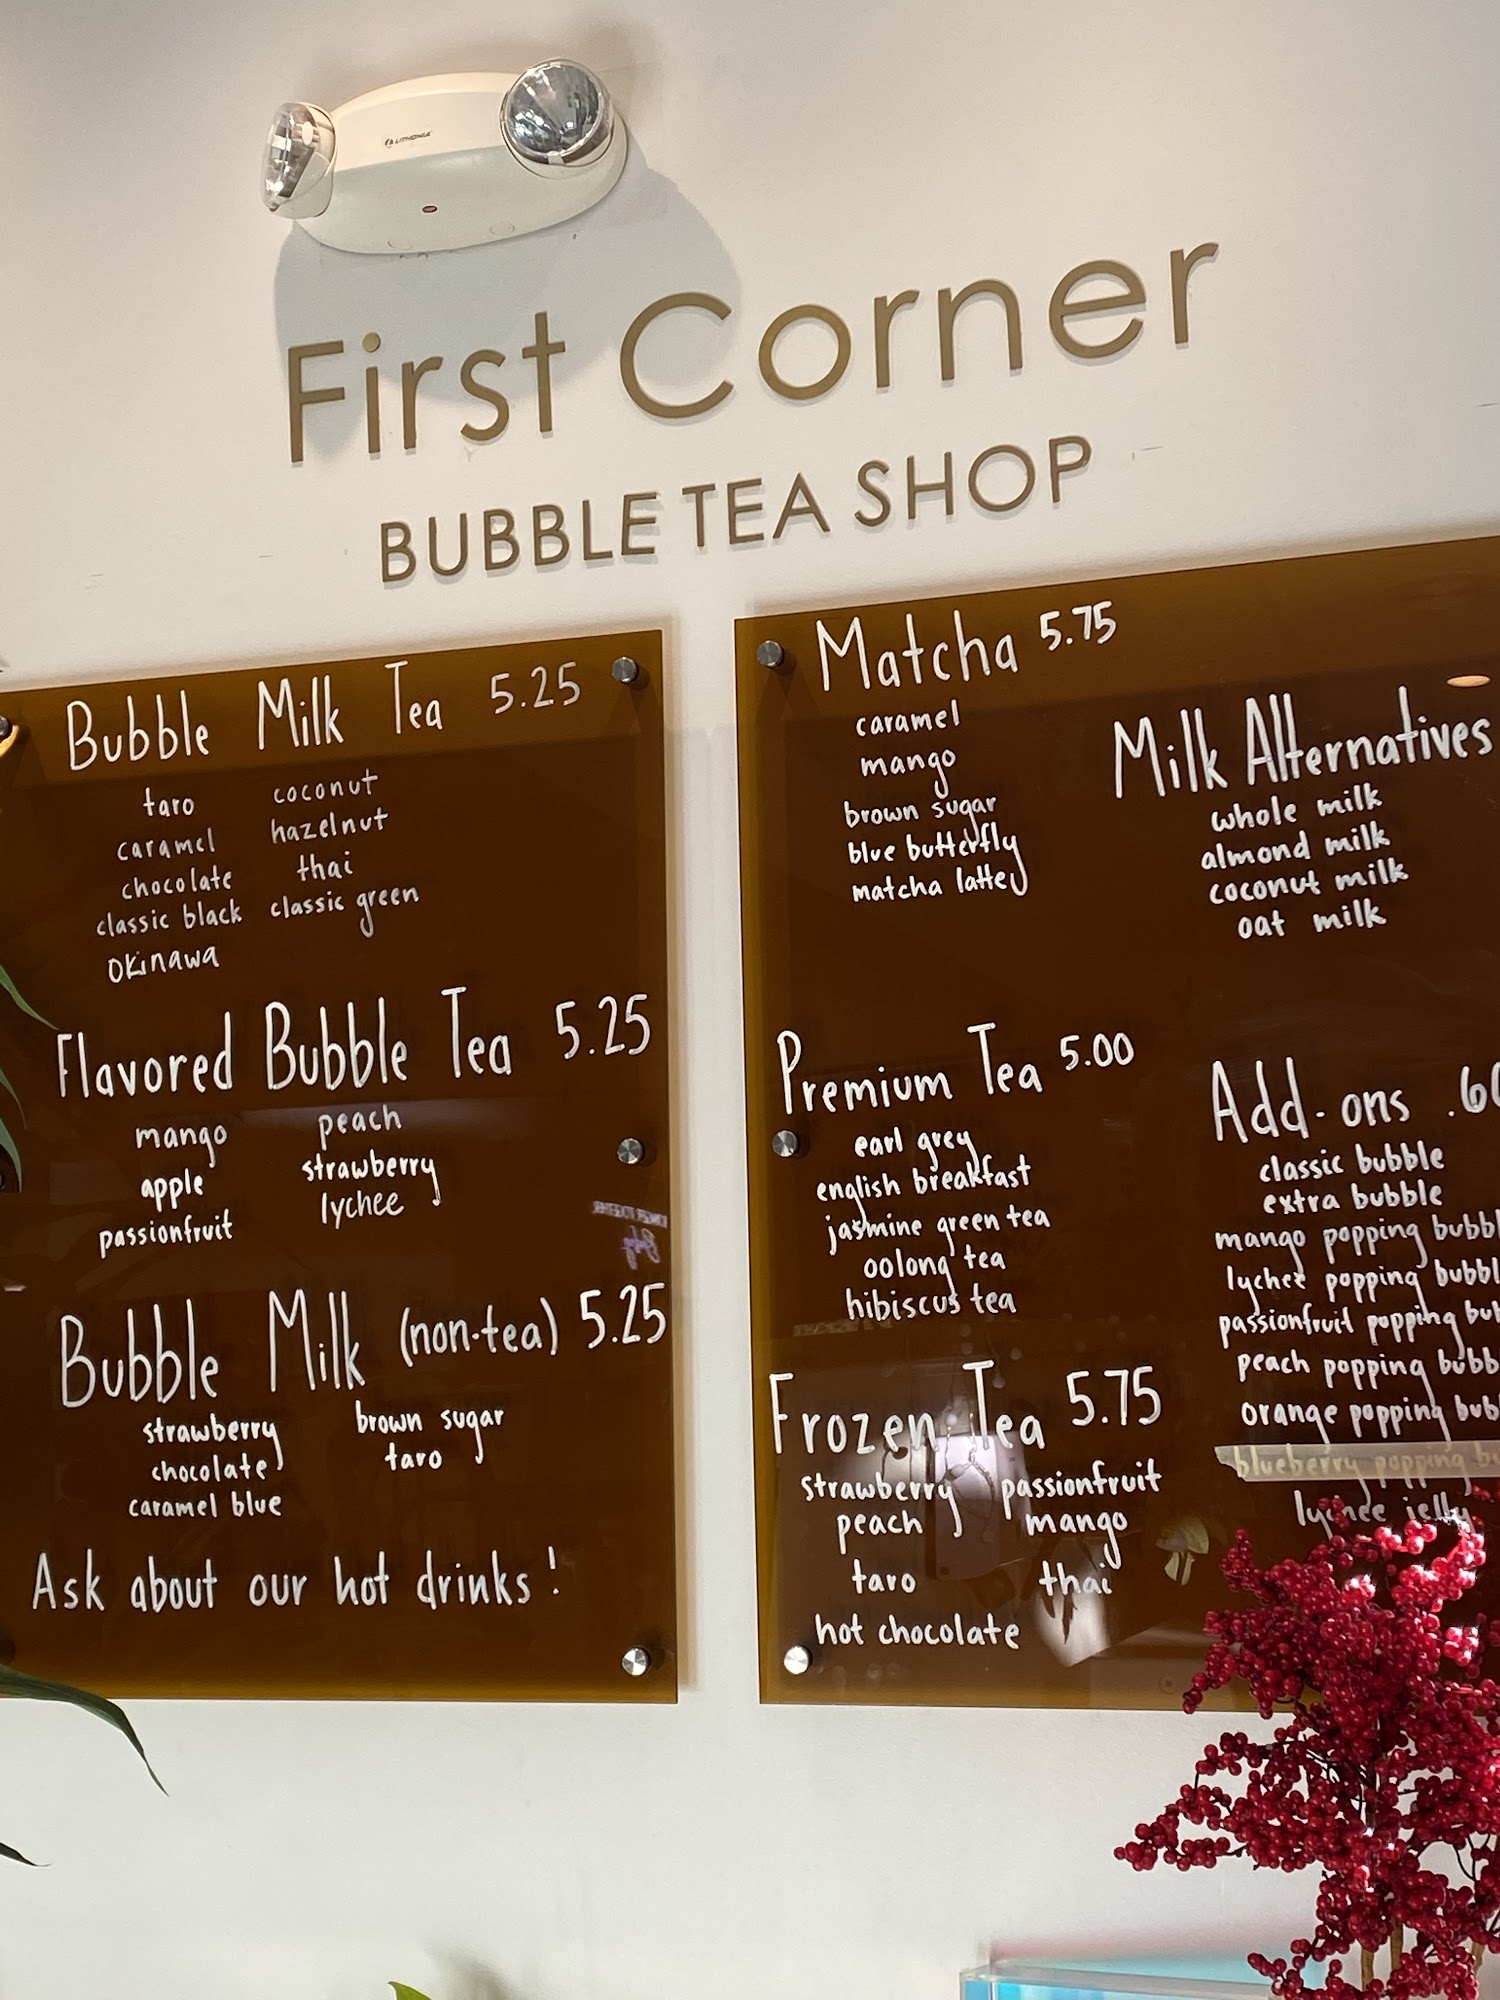 LITHONIA
First Corner
BUBBLE TEA SHOP
Bubble Milk Tea 5.25
taro
caramel
chocolate
classic black
Okinawa
coconut
hazelnut
thai
classic green
Flavored Bubble Tea 5.25
mango
apple
passionfruit
peach
strawberry
lychee
Bubble Milk (non-tea) 5.25
strawberry
chocolate
caramel blue
brown sugar
taro
Ask about our hot drinks!
Matcha 5.75
caramel
mango
brown sugar
blue butterfly
matcha latte
Milk Alternatives
whole milk
almond milk
coconut milk
oat milk
Premium Tea 5.00
earl grey
english breakfast
jasmine green tea
oolong tea
hibiscus tea
Frozen Tea 5.75
strawberry
peach
taro
hot chocolate
passionfruit
mango
thai
Add-ons .60
classic bubble
extra bubble
mango popping bubbl
lychee popping bubbl
passionfruit popping bu
peach popping bubb
orange popping bub
blueberry popping bu
lychee jelly